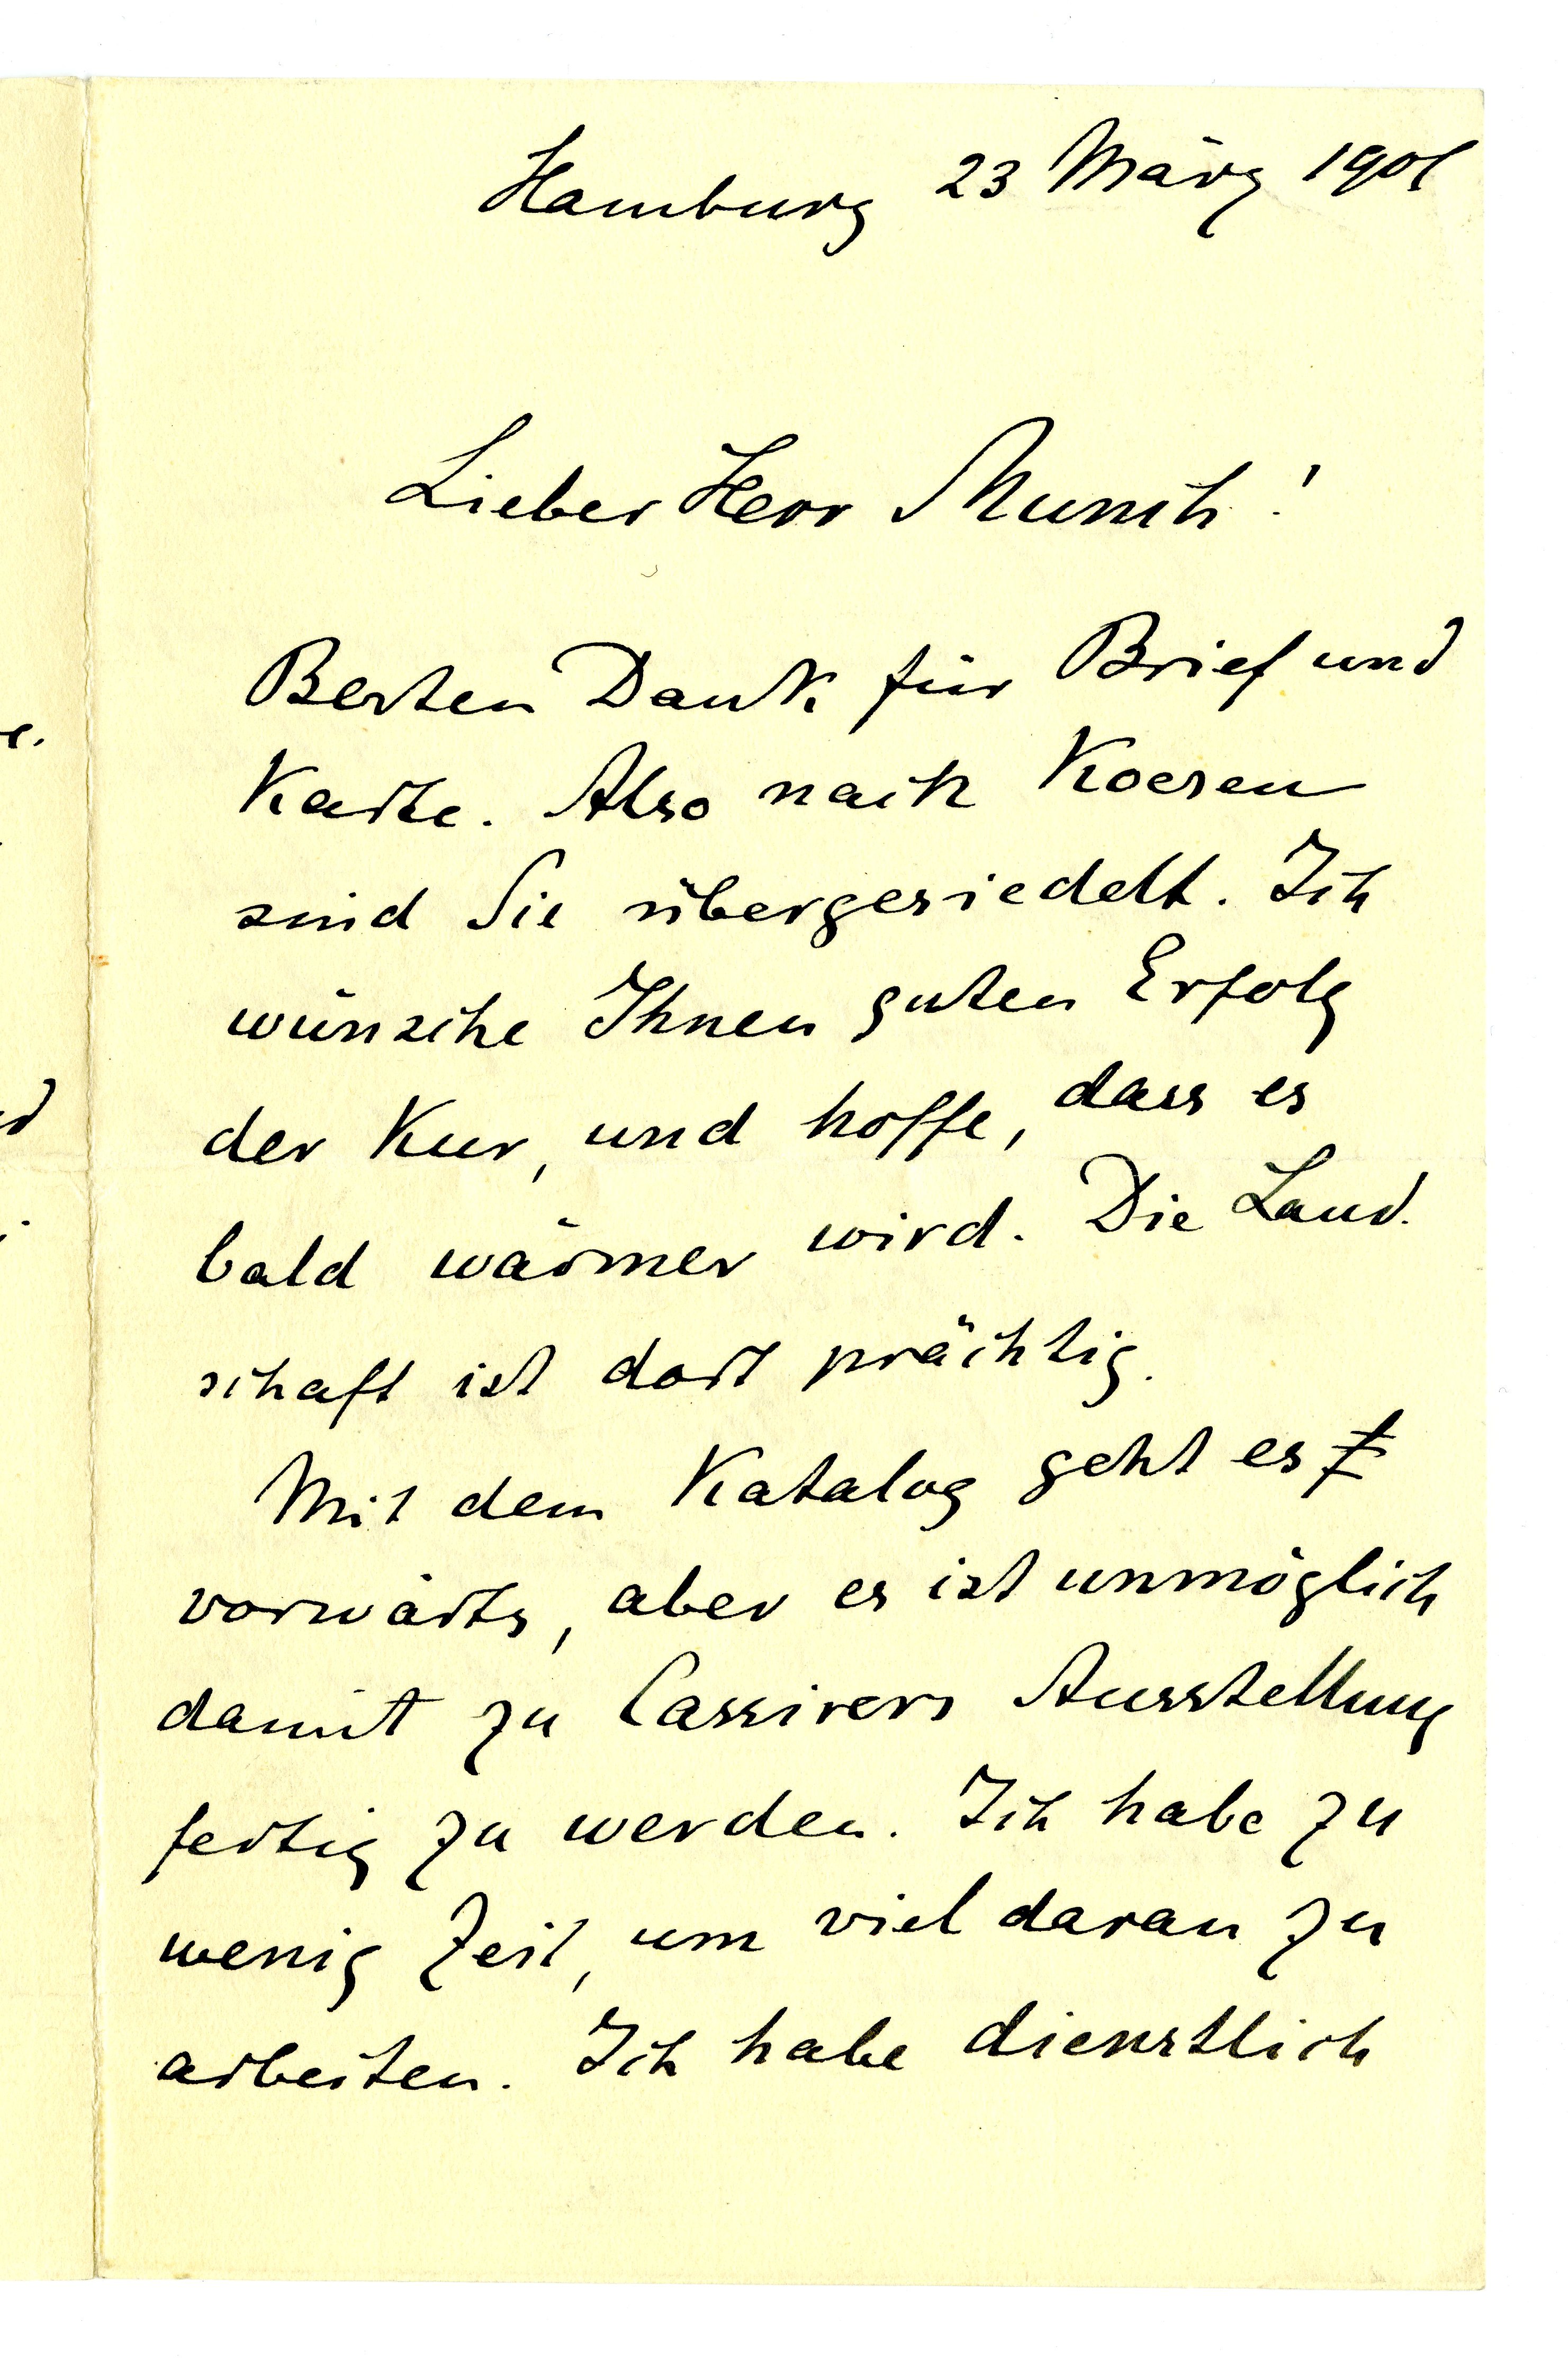 Hamburg 23 März 1901
Lieber Herr Munch!
Besten Dank für Brief und
Karte. Also nach Koesen
sind Sie übergesiedelt. Ich
wünsche Ihnen guten Erfolg
der Kur, und hoffe, dass es
bald wärmer wird. Die Land-
schaft ist dort prächtig.
Mit dem Katalog geht es
vorwärts, aber es ist unmöglich
damit zu Cassirers Ausstellung
fertig zu werden. Ich habe zu
wenig Zeit, um viel daran zu
arbeiten. Ich habe dienstlich